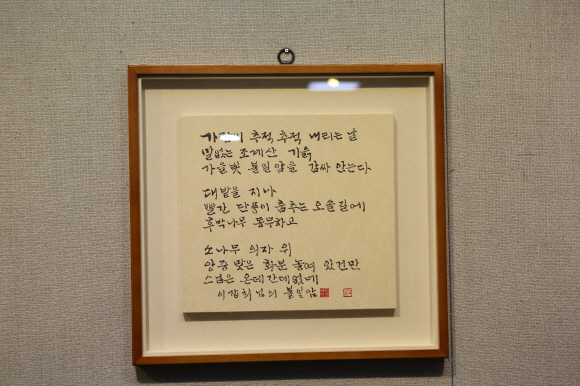 추적 추적 내리는 날
말없는 조계산 기슭
가을빛 불일암을 감싸 안는다
대밭을 지나
빨간 단풍이 춤추는 오솔길에
후박나무 동무하고
소나무 의자 위
앙증 맞은 화분 놓여 있건만
스님은 온데간데없네
불일암